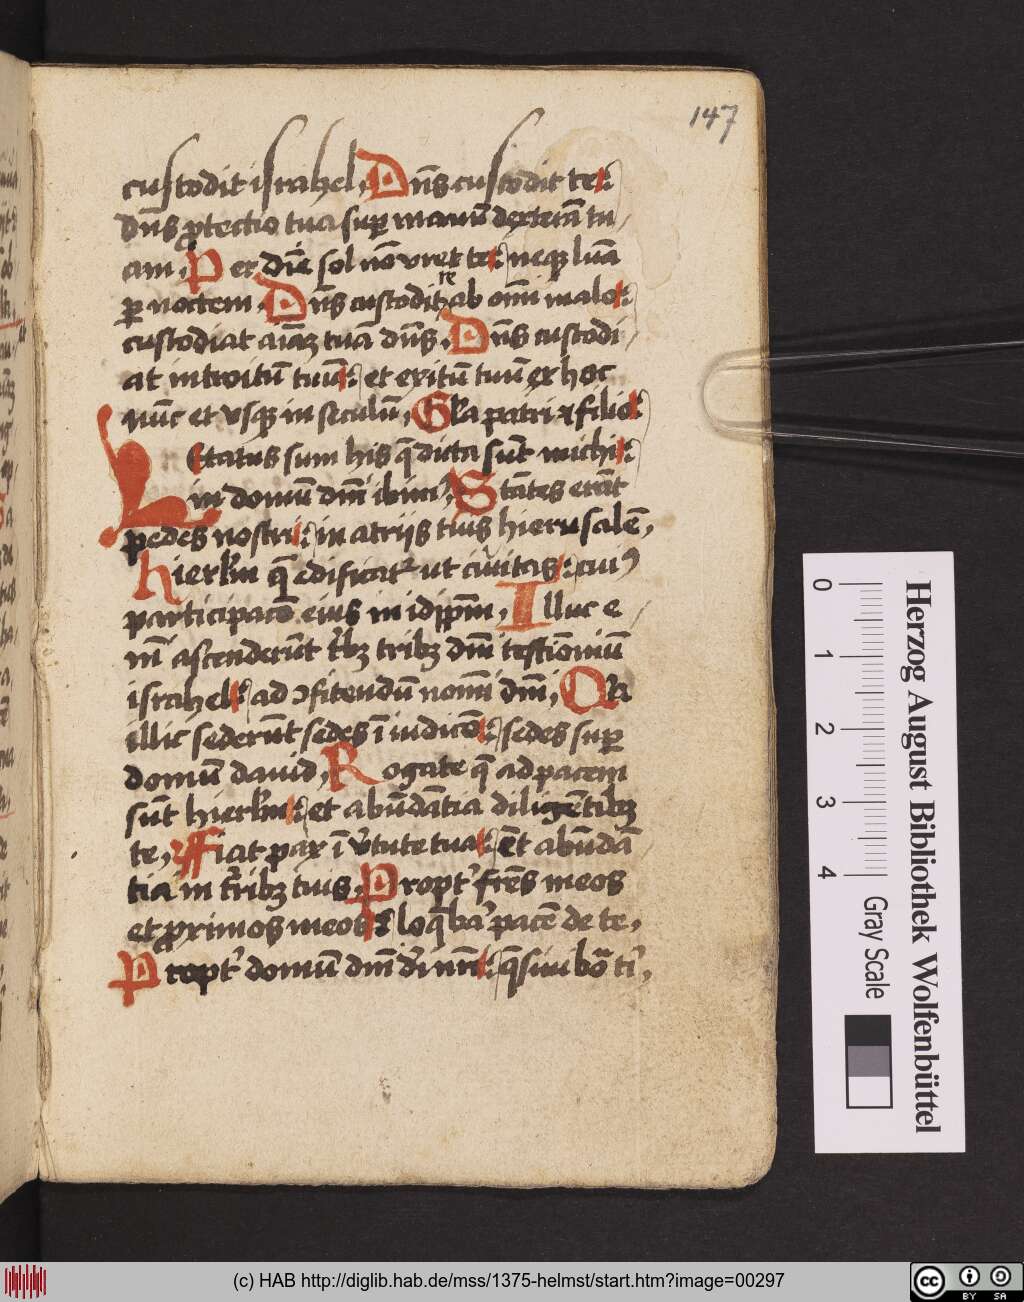 147
custodit israhel, Dn̄s custodit te:
Dn̄s ꝓtectio tua suꝑ manū dexterā tu
am, Per diē sol nō vret te: neqꝫ lunā
ꝑ noctem, Dn̄s custodit te ab om̄i malo:
custodiat aīaꝫ tuā dn̄s, Dn̄s custodi
at introitū tuū: et exitū tuū ex hoc
nūc et vsqꝫ in seculū, Gl̄a patri ⁊ filio:
Letatus sum his q̄ dicta sūt michi:
in domū dn̄i ibim9, Stātes erāt
pedes nostri: in atriis tuis hierusalē,
Hierl̄m q̄ edificat᷑ ut ciuitas: cui9
participacō eius in idip̄m, Illuc e
nī ascenderūt t͛bꝫ tribꝫ dn̄i testīoniū
israhel: ad ↄfitendū nomi dn̄i, Qꝛ
illic sederūt sedes ī iudicō: sedes suꝑ
domū dauid, Rogate q̄ ad pacem
sūt hierl̄m: et abūdātia diligētibꝫ
te, Fiat pax ī v͛tute tua: et abūdā
tia in t͛ribꝫ tuis, Propt͛ frēs meos
et ꝓximos meos: loq̄ba͛ pacē de te,
Propt͛ domū dn̄i dei nr̄i: q̄siui bōa ti͛,
Herzog August Bibliothek Wolfenbüttel
0 1 2 3 4
Gray Scale
(c) HAB http://diglib.hab.de/mss/1375-helmst/start.htm?image=00297
cc BY SA